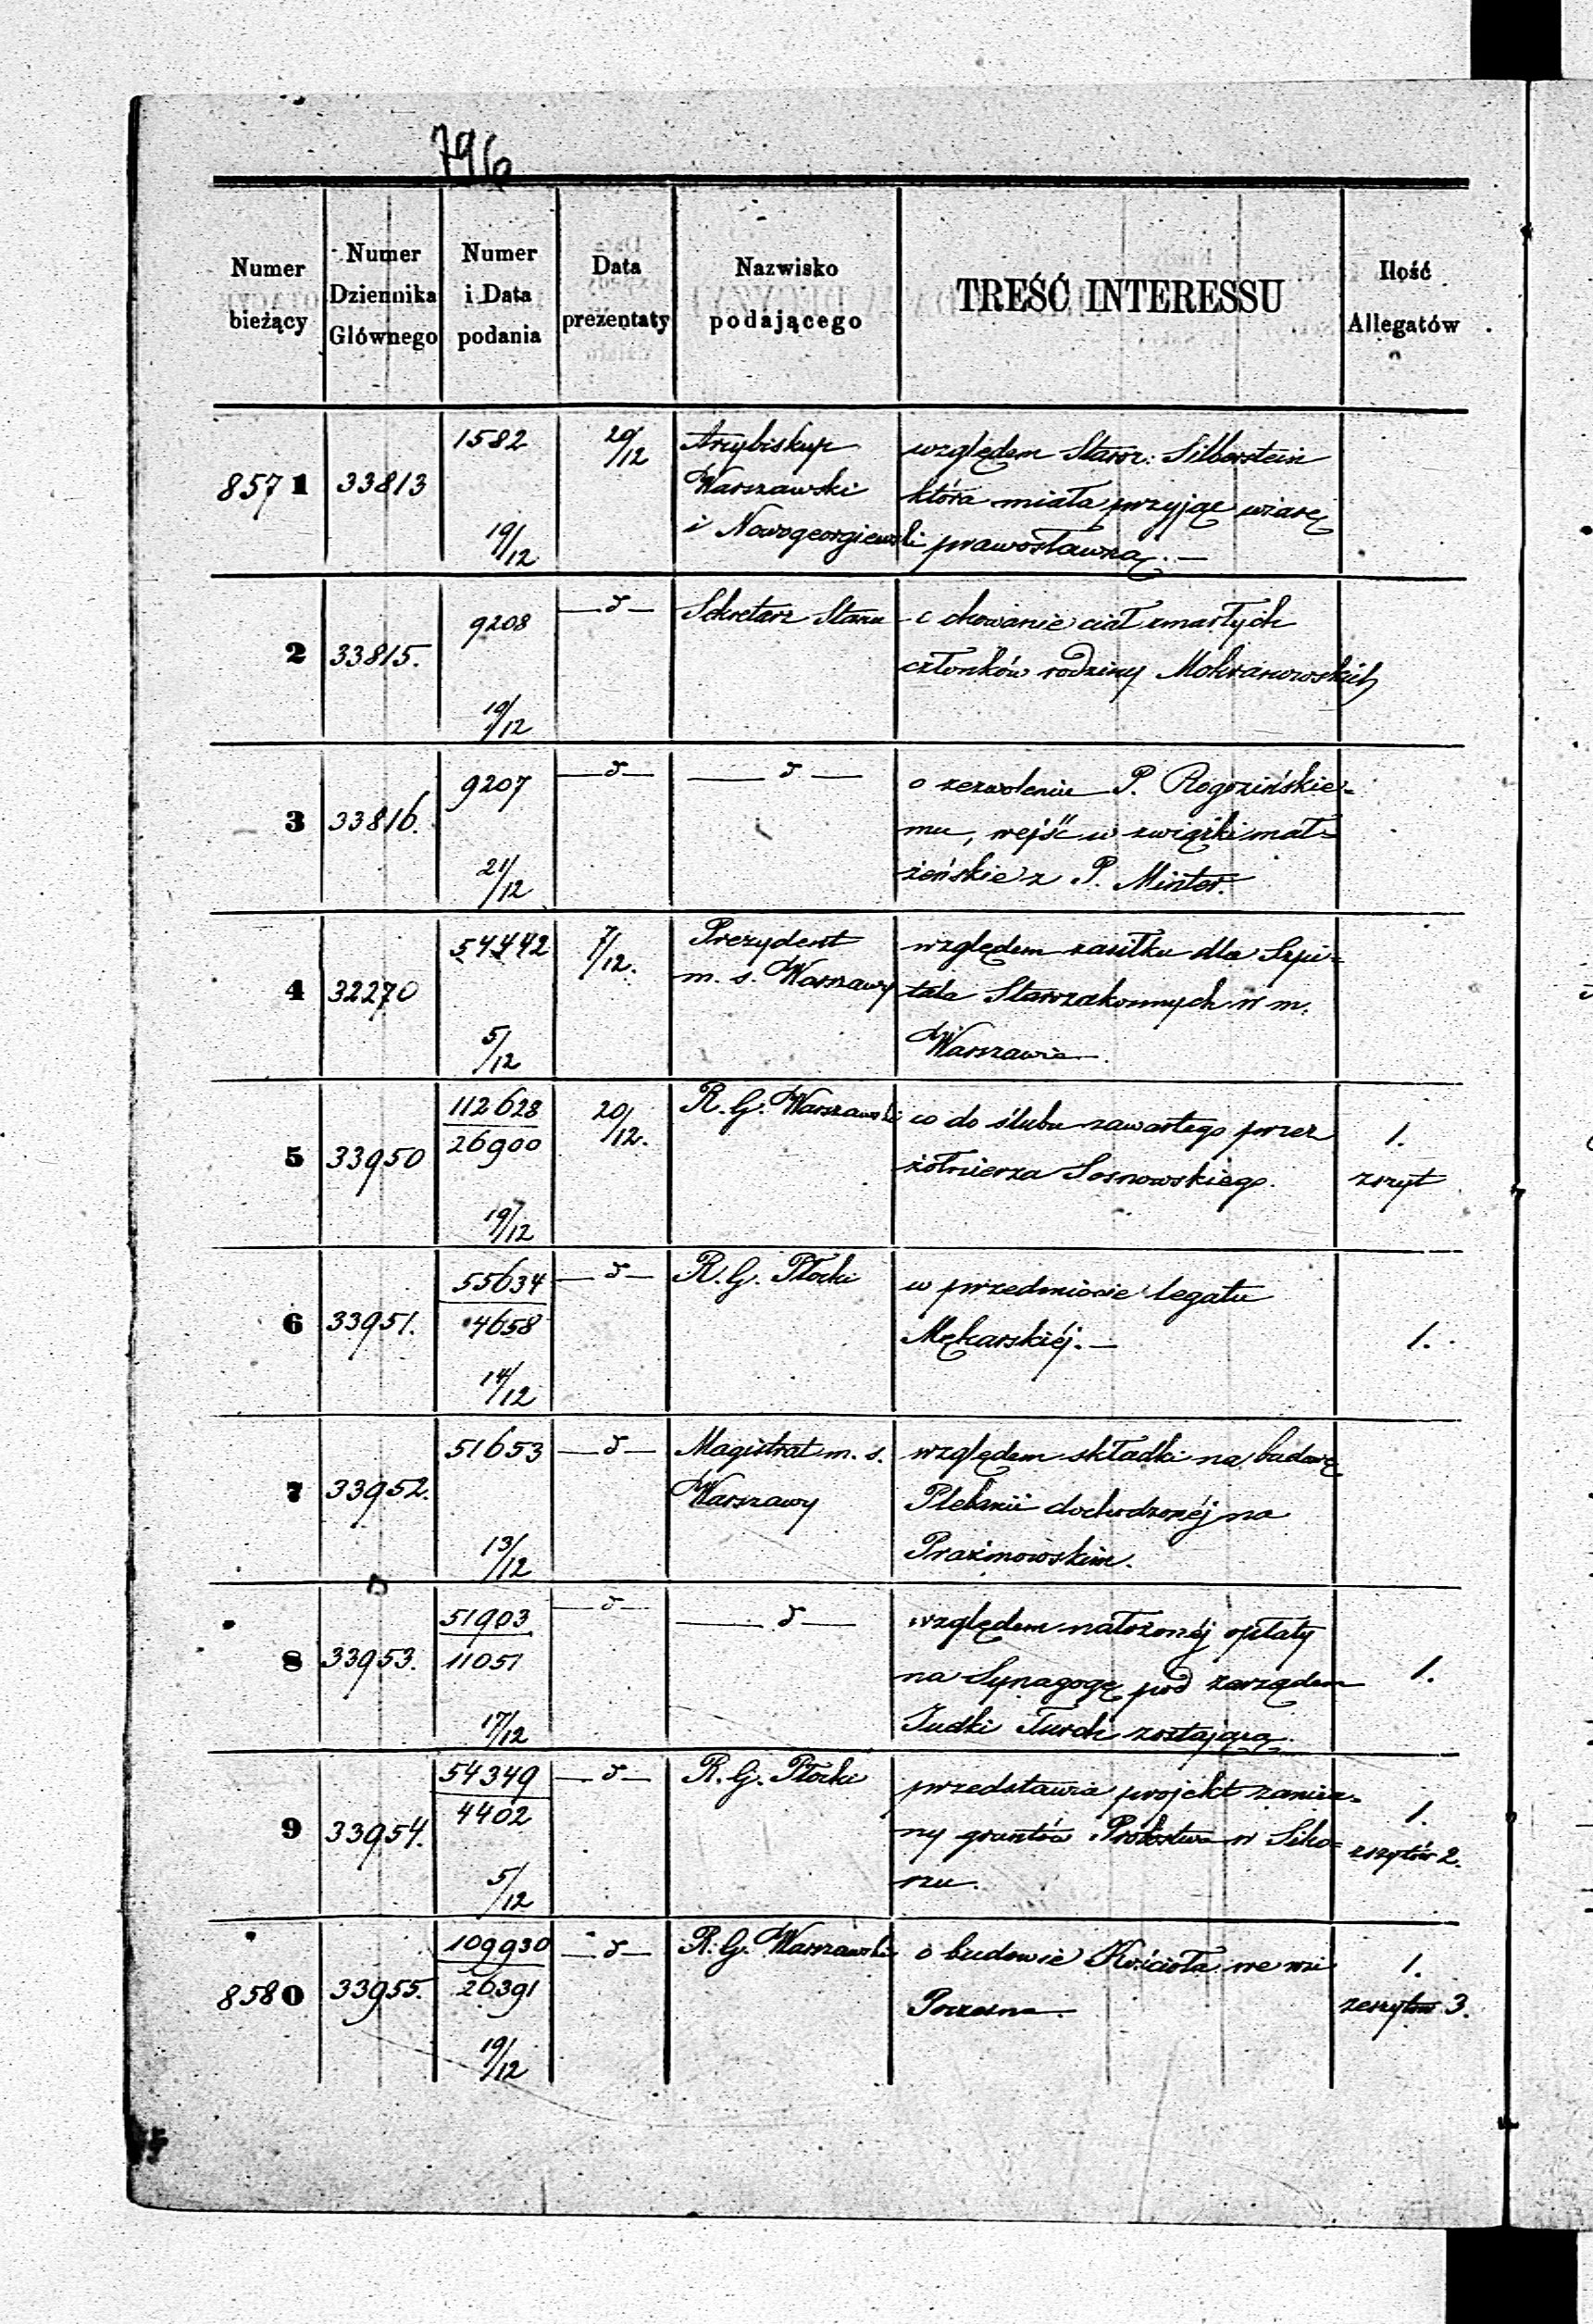 796
Numer bieżący
Numer Dziennika Głównego
Numer i Data podania
Data prezentaty
Nazwisko podającego
TREŚĆ INTERESSU
Ilość Allegatów
8571 33813 1582 19/12 20/12
Arcybiskup
Warszawski
i Nowogeorgiewski
względem Starz: Silberstein
która miała przyjąć wiarę
prawosławną. —
2 33815. 9208 19/12 — d —
Sekretarz Stanu
o chowanie ciał zmarłych
członków rodziny Mokranowskich
3 33816. 9207 21/12 — d — — d —
o zezwoleniu P. Rogozińskie-
mu, wejść w związki mał=
żeńskie z P. Minter.
4 32270 54442 5/12 7/12.
Prezydent
m. s. Warszawy
względem zasiłku dla Szpi=
tala Starozakonnych w m.
Warszawie.
5 33950 112628 26900 19/12 20/12.
R. G. Warszawski
co do ślubu zawartego przez
żołnierza Sosnowskiego.
1.
zszyt
6 33951. 55634 4658 14/12 — d —
R. G. Płocki
w przedmiocie legatu
Mękarskiéj. —
1.
7 33952. 51653 13/12 — d —
Magistrat m. s.
Warszawy
względem składki na budowę
Plebanii dochodzonéj na
Prażmowskim.
8 33953. 51903 11051 17/12 — d — — d —
względem nałożonéj opłaty
na Synagogę pod zarządem
Judki Turek zostającą.
1.
9 33954. 54349 4402 5/12 — d —
R. G. Płocki
przedstawia projekt zamia=
ny gruntów Probostwa w Siko=
rzu.
1.
zszytów 2.
8580 33955. 109930 26391 19/12 — d —
R. G. Warszawski
o budowie Kościoła we wsi
1.
zeszytów 3.